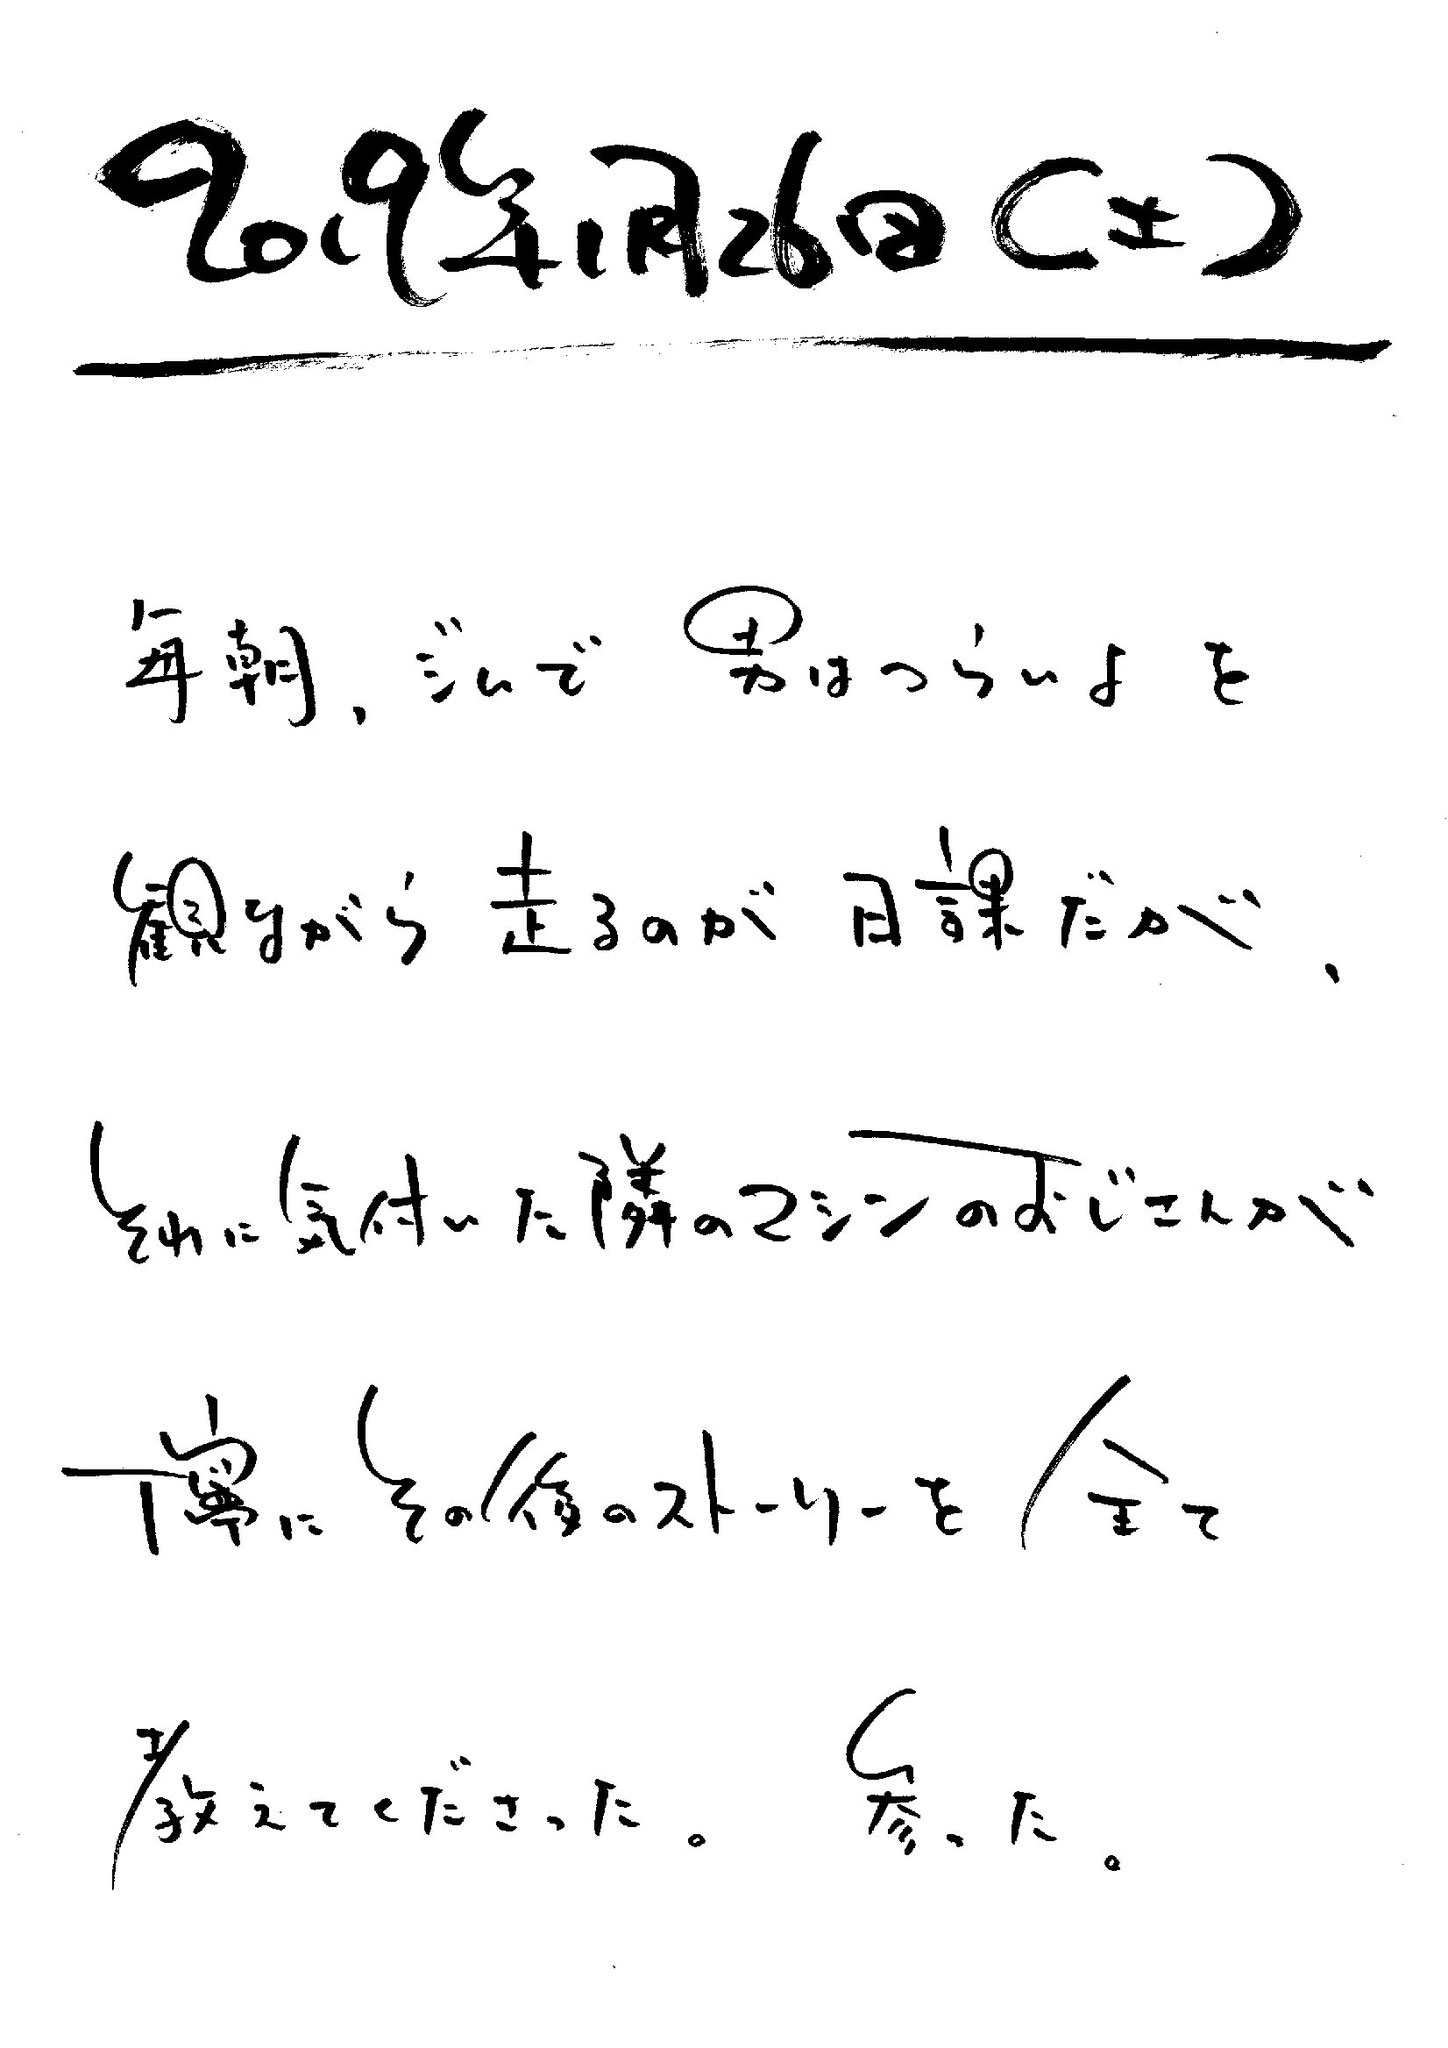 2019年1月26日(土)
毎朝、ジムで 男はつらいよ を
観ながら 走るのが 日課だが、
それに気付いた隣のマシンのおじさんが
丁寧に その後のストーリーを 全て
教えてくださった。 参った。